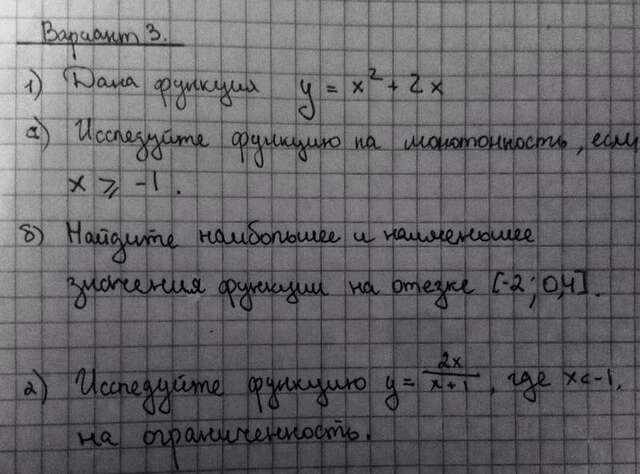 Вариант 3.
1) Дана функция y = x² + 2x
а) Исследуйте функцию на монотонность, если
x ⩾ -1.
б) Найдите наибольшее и наименьшее
значения функции на отезке [-2; 0,4].
2) Исследуйте функцию y = 2x/(x+1), где x<-1,
на ограниченность.